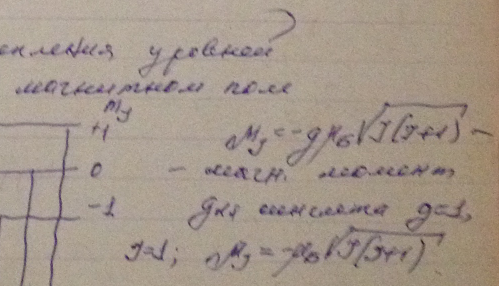 пления уровней
магнитном поле
m_J
+1 μ_J = -gμ_Б√J(J+1) –
0 – магн. момент
-1 для синглета g=1,
J=1; μ_J = -μ_Б√J(J+1)